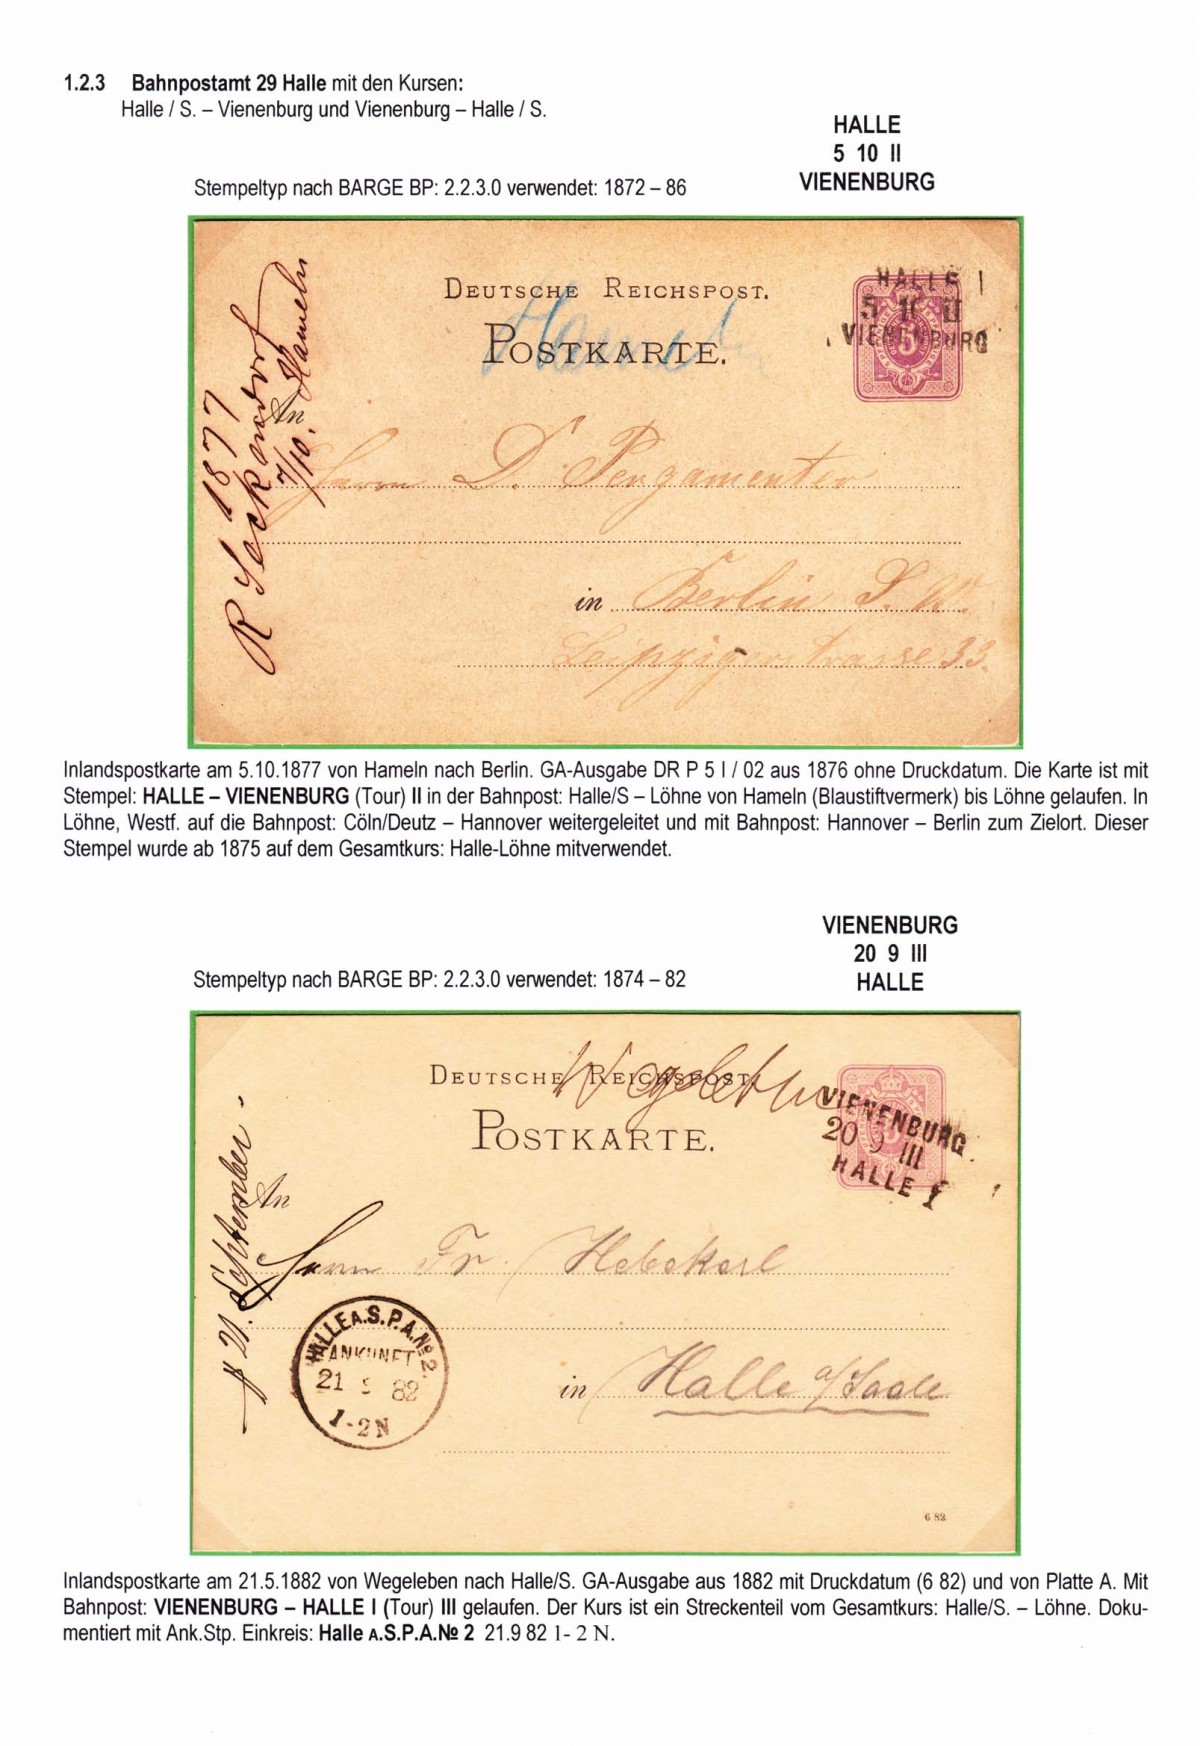 1.2.3 Bahnpostamt 29 Halle mit den Kursen:
Halle / S. – Vienenburg und Vienenburg – Halle / S.
HALLE
5 10 II
VIENENBURG
Stempeltyp nach BARGE BP: 2.2.3.0 verwendet: 1872 – 86
DEUTSCHE REICHSPOST.
POSTKARTE.
HALLE I
5 10 II
VIENENBURG
1877
R Seckendorf
7/10. Hameln
An
Herrn D. Pergamenter
in Berlin S. W.
Leipzigerstrasse 33.
Inlandspostkarte am 5.10.1877 von Hameln nach Berlin. GA-Ausgabe DR P 5 I / 02 aus 1876 ohne Druckdatum. Die Karte ist mit
Stempel: HALLE – VIENENBURG (Tour) II in der Bahnpost: Halle/S – Löhne von Hameln (Blaustiftvermerk) bis Löhne gelaufen. In
Löhne, Westf. auf die Bahnpost: Cöln/Deutz – Hannover weitergeleitet und mit Bahnpost: Hannover – Berlin zum Zielort. Dieser
Stempel wurde ab 1875 auf dem Gesamtkurs: Halle-Löhne mitverwendet.
VIENENBURG
20 9 III
HALLE
Stempeltyp nach BARGE BP: 2.2.3.0 verwendet: 1874 – 82
DEUTSCHE REICHSPOST.
POSTKARTE.
VIENENBURG
20 9 III
HALLE I
21. September
An
Herrn Fr. Hebekerl
HALLE A.S.P.A.№ 2.
ANKUNFT
21 9 82
1-2 N
in Halle a/Saale
6 82
Inlandspostkarte am 21.5.1882 von Wegeleben nach Halle/S. GA-Ausgabe aus 1882 mit Druckdatum (6 82) und von Platte A. Mit
Bahnpost: VIENENBURG – HALLE I (Tour) III gelaufen. Der Kurs ist ein Streckenteil vom Gesamtkurs: Halle/S. – Löhne. Doku-
mentiert mit Ank.Stp. Einkreis: Halle A.S.P.A.№ 2 21.9 82 1- 2 N.